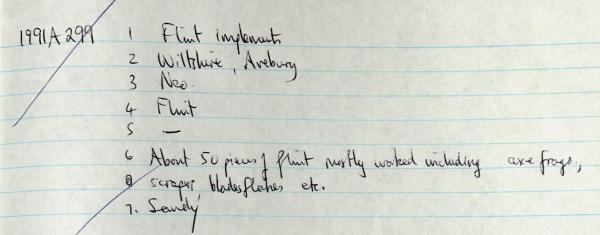 1991A299 1 Flint implements
2 Wiltshire, Avebury
3 Neo.
4 Flint
5 —
6 About 50 pieces of flint mostly worked including axe frags,
scraper, blades flakes etc.
7. Sandy